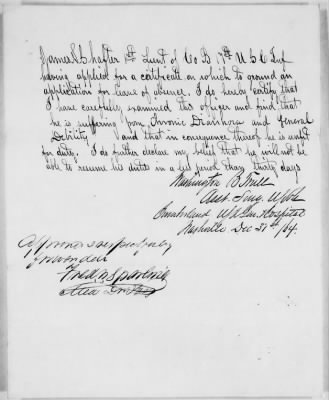 James S. Shafter 1st Lieut of Co B. 17th U S C Inf
having applied for a certificate on which to ground an
application for leave of absence. I do hereby certify that
I have carefully examined this officer and find that
he is suffering from Chronic Diarrhoea and General
Debility and that in consequence thereof he is unfit
for duty. I do further declare my belief that he will not be
able to resume his duties in a less period than thirty days
Washington B. Trull
Asst. Surg. U S Vol
Cumberland U.S. Gen. Hospital
Nashville Dec 31st /64.
Approved &
Fred